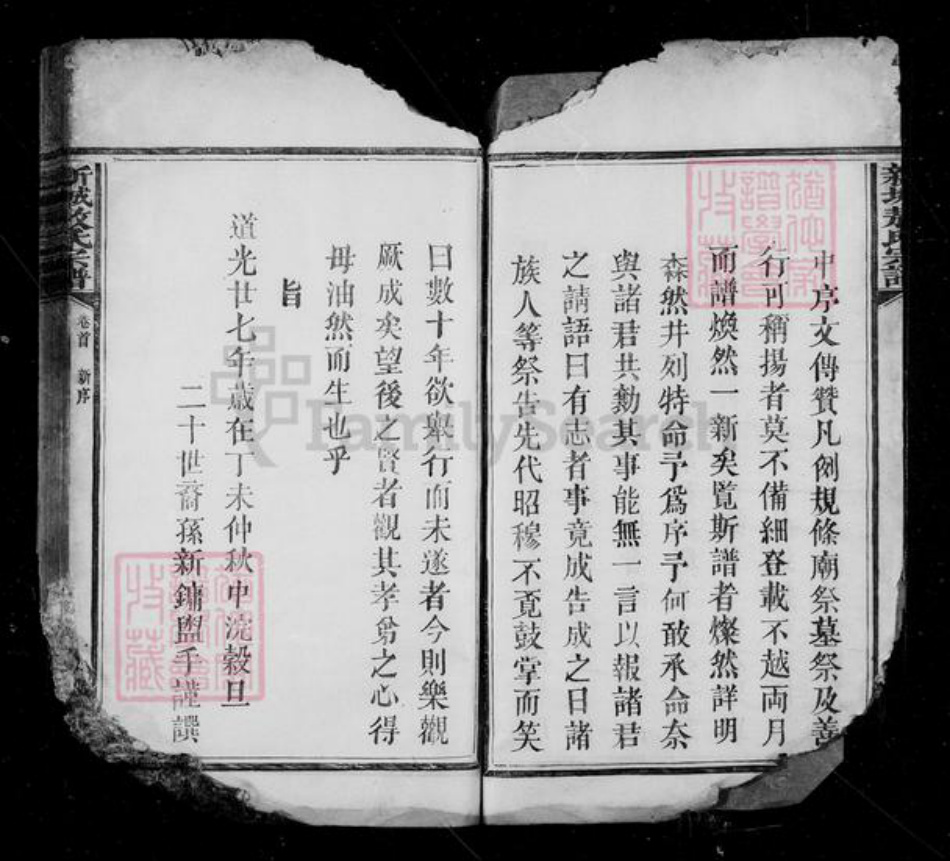 中序文傳贊凡例規條廟祭墓祭及善
行可稱揚者莫不備細登載不越両月
而譜煥然一新矣覧斯譜者燦然詳明
森然井列特命予爲序予何敢承命奈
與諸君共勷其事能無一言以報諸君
之請語曰有志者事竟成告成之日諸
族人等祭告先代昭穆不覔鼓掌而笑
曰數十年欲舉行而未遂者今則樂觀
厥成矣望後之賢者觀其孝弟之心得
毋油然而生也乎
旨
道光廿七年歲在丁未仲秋中浣穀旦
二十世裔孫新鏞盥手謹譔
新城敖氏宗譜
卷首 新序
FamilySearch